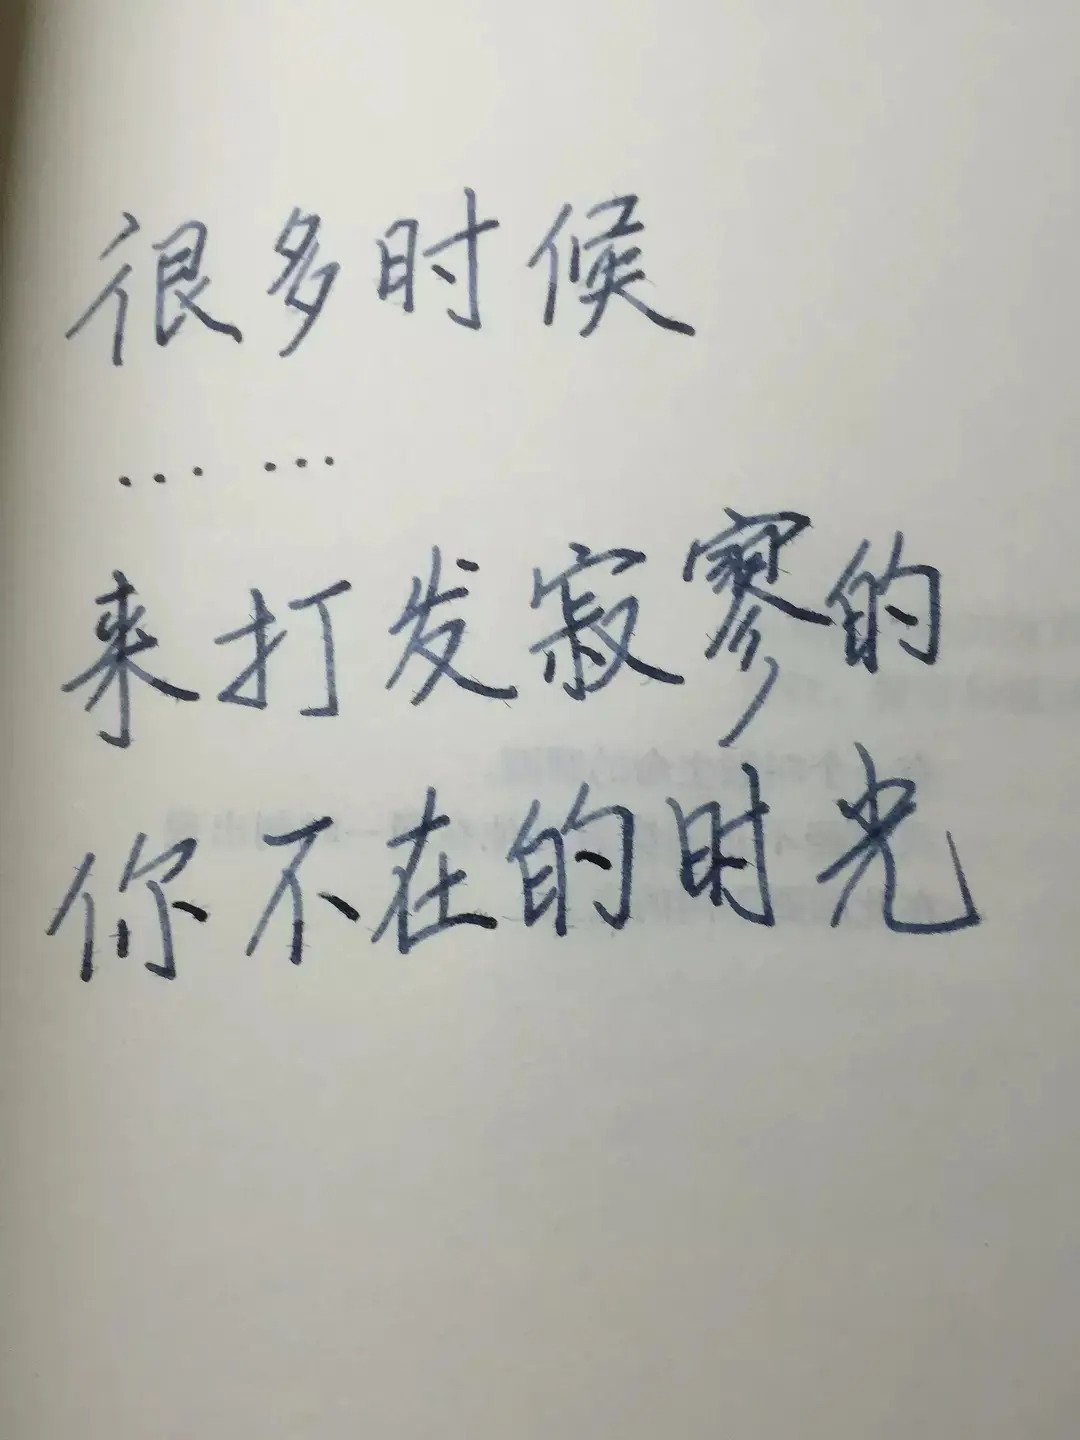 很多时候
……
来打发寂寥的
你不在的时光